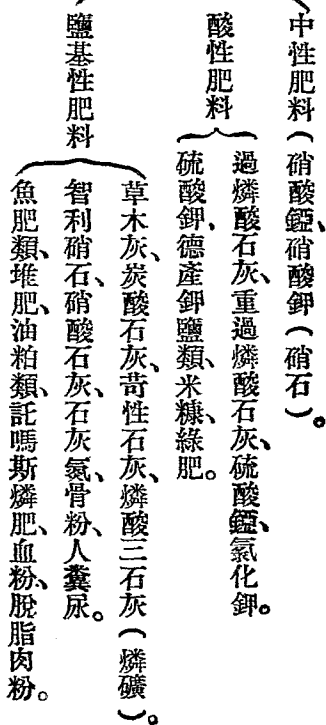 中性肥料(硝酸錏、硝酸鉀(硝石)。
酸性肥料
過燐酸石灰、重過燐酸石灰、硫酸錏、氯化鉀。
硫酸鉀、德產鉀鹽類、米糠、綠肥。
鹽基性肥料
草木灰、炭酸石灰、苛性石灰、燐酸三石灰(燐礦)。
智利硝石、硝酸石灰、石灰氮、骨粉、人糞尿。
魚肥類、堆肥、油粕類、託嗎斯燐肥、血粉、脫脂肉粉。